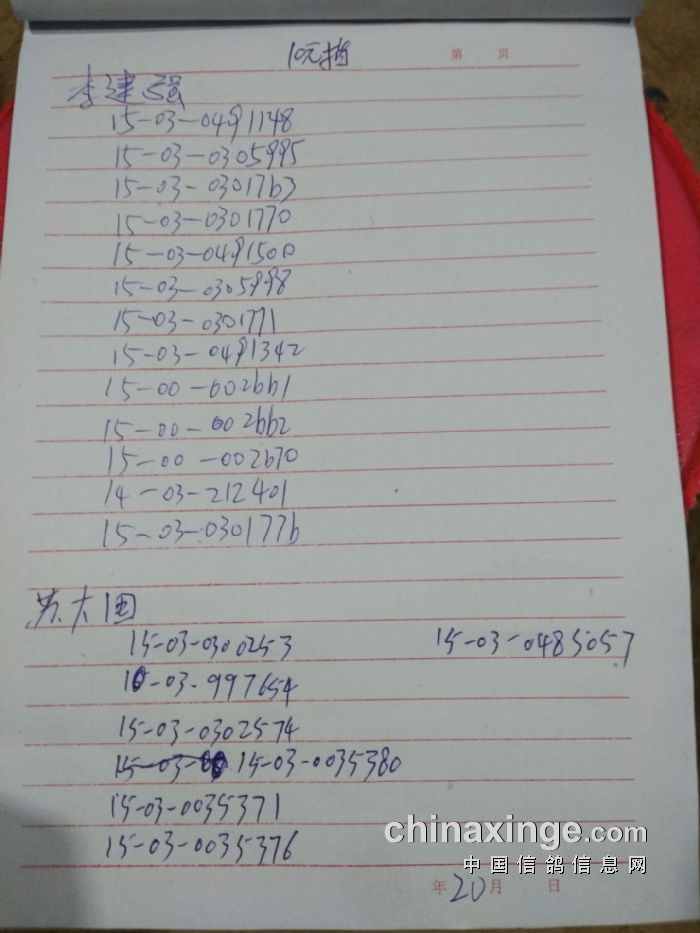 10元指
第 页
李建强
15-03-0491148
15-03-0305995
15-03-0301763
15-03-0301770
15-03-0491500
15-03-0305998
15-03-0301771
15-03-0491342
15-00-002661
15-00-002662
15-00-002670
14-03-212401
15-03-0301776
苏大国
15-03-0300253 15-03-0485057
10-03-997654
15-03-0302574
15-03-00 15-03-0035380
15-03-0035371
15-03-0035376
chinaxinge.com
中国信鸽信息网
年 20 月 日